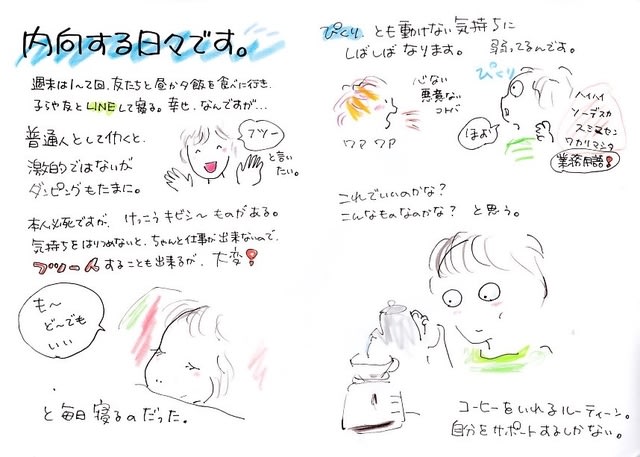 内向する日々です。
週末は1〜2回、友だちと昼か夕飯を食べに行き、
子らや友とLINEして寝る。幸せ、なんですが…
普通人として仂くと、
激的ではないが
ダンピングもたまに。
フツー
と言い
たい。
本人必死ですが、けっこうキビシ〜ものがある。
気持ちをはりつめないと、ちゃんと仕事が出来ないので、
することも出来るが、大変!
も〜
ど〜でも
いい
と毎日寝るのだった。
ぴくりとも動けない気持ちに
しばしばなります。 弱ってるんです。
心ない
悪意ない
コトバ
ワァ ワァ
ぴくり
ほよ
ハイハイ
ソーデスカ
スミマセン
ワカリマシタ
業務用語!
これでいいのかな?
こんなものなのかな? と思う。
コーヒーをいれるルーティーン。
自分をサポートするしかない。